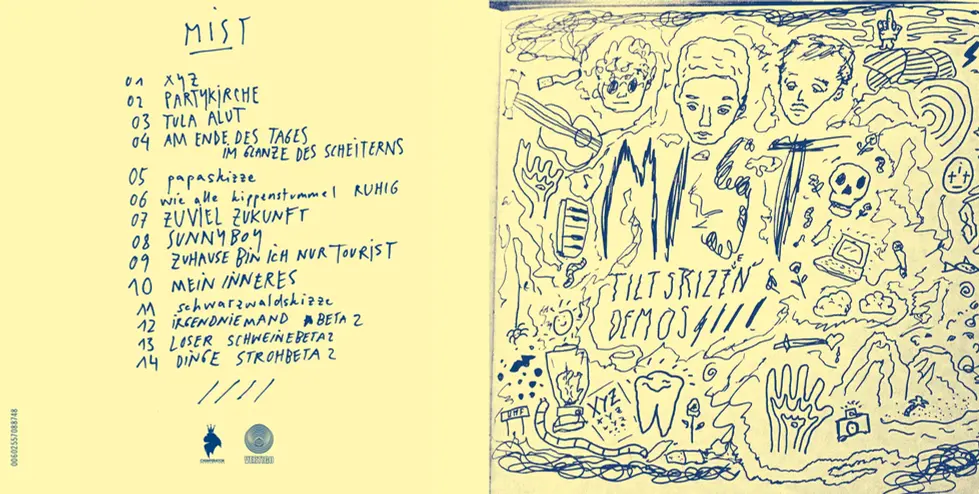 MIST
01 XYZ
02 PARTYKIRCHE
03 TULA ALUT
04 AM ENDE DES TAGES
IM GLANZE DES SCHEITERNS
05 papaskizze
06 wie alle kippenstummel RUHIG
07 ZUVIEL ZUKUNFT
08 SUNNYBOY
09 ZUHAUSE BIN ICH NUR TOURIST
10 MEIN INNERES
11 schwarzwaldskizze
12 IRGENDNIEMAND BETA 2
13 LOSER SCHWEINEBETA2
14 DINGE STROHBETA 2
VERTIGO
00602557088748
MIST
TILT SKIZZN
DEMOS
XYZ